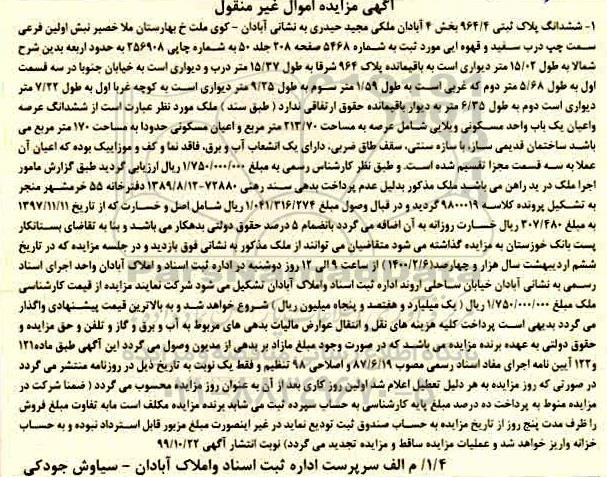 آگهی مزایده اموال غیر منقول
۱- ششدانگ پلاک ثبتی ۹۶۴/۴ بخش ۴ آبادان ملکی مجید حیدری به نشانی آبادان - کوی ملت خ بهارستان ملا خصیر نبش اولین فرعی
سمت چپ درب سفید و قهوه ایی مورد ثبت به شماره ۵۴۶۸ صفحه ۲۰۸ جلد ۵۰ به شماره چاپی ۲۵۶۹۰۸ به حدود اربعه بدین شرح
شمالا به طول ۱۵/۰۲ متر دیواری است به باقیمانده پلاک ۹۶۴ شرقا به طول ۱۵/۳۷ متر درب و دیواری است به خیابان جنوبا در سه قسمت
اول به طول ۵/۶۸ متر دوم که غربی است به طول ۱/۵۹ متر سوم به طول ۹/۲۵ متر دیواری است به کوچه غربا اول به طول ۷/۲۲ متر
دیواری است دوم به طول ۶/۳۵ متر به دیوار باقیمانده حقوق ارتفاقی ندارد ( طبق سند ) ملک مورد نظر عبارت است از ششدانگ عرصه
واعیان یک باب واحد مسکونی ویلایی شامل عرصه به مساحت ۲۱۳/۷۰ متر مربع و اعیان مسکونی حدودا به مساحت ۱۷۰ متر مربع می
باشد ساختمان قدیمی ساز، با سازه سنتی، سقف طاق ضربی، دارای یک انشعاب آب و برق، فاقد نما و کف و موزاییک بوده که اعیان آن
عملا به سه قسمت مجزا تقسیم شده است. و طبق نظر کارشناس رسمی به مبلغ ۱/۷۵۰/۰۰۰/۰۰۰ ریال ارزیابی گردید طبق گزارش مامور
اجرا ملک در ید راهن می باشد ملک مذکور بدلیل عدم پرداخت بدهی سند رهنی ۷۲۸۸۰-۱۳۸۹/۸/۱۳ دفترخانه ۵۵ خرمشهر منجر
به تشکیل پرونده کلاسه ۹۸۰۰۰۱۹ گردید و در قبال وصول مبلغ ۱/۰۴۱/۳۱۶/۲۷۴ ریال شامل اصل و خسارت که از تاریخ ۱۳۹۷/۱۱/۱۱
به مبلغ ۳۰۷/۴۸۰ ریال خسارت روزانه به آن اضافه می گردد بانضمام ۵ درصد حقوق دولتی بدهکار می باشد و بنا به تقاضای بستانکار
پست بانک خوزستان به مزایده گذاشته می شود متقاضیان می توانند از ملک مذکور به نشانی فوق بازدید و در جلسه مزایده که در تاریخ
ششم اردیبهشت سال هزار و چهارصد(۱۴۰۰/۲/۶) از ساعت ۹ الی ۱۲ روز دوشنبه در اداره ثبت اسناد و املاک آبادان واحد اجرای اسناد
رسمی به نشانی آبادان خیابان ساحلی اروند اداره ثبت اسناد واملاک آبادان تشکیل می شود شرکت نمایند مزایده از قیمت کارشناسی
ملک مبلغ ۱/۷۵۰/۰۰۰/۰۰۰ ریال ( یک میلیارد و هفتصد و پنجاه میلیون ریال ) شروع خواهد شد و به بالاترین قیمت پیشنهادی واگذار
می گردد بدیهی است پرداخت کلیه هزینه های نقل و انتقال عوارض مالیات بدهی های مربوط به آب و برق و گاز و تلفن و حق مزایده و
حقوق دولتی به عهده برنده مزایده می باشد که در صورت وجود مبلغ مازاد بر بدهی از مدیون وصول می گردد این آگهی طبق ماده۱۲۱
و۱۲۲ آیین نامه اجرای مفاد اسناد رسمی مصوب ۸۷/۶/۱۹ و اصلاحی ۹۸ تنظیم و فقط یک نوبت به تاریخ ذیل در روزنامه منتشر می گردد
در صورتی که روز مزایده به هر دلیل تعطیل اعلام شد اولین روز کاری بعد از آن به عنوان روز مزایده محسوب می گردد ( ضمنا شرکت در
مزایده منوط به پرداخت ده درصد مبلغ پایه کارشناسی به حساب سپرده ثبت می شابد برنده مزایده مکلف است مابه تفاوت مبلغ فروش
را ظرف مدت پنج روز از تاریخ مزایده به حساب صندوق ثبت تودیع نماید در غیر اینصورت مبلغ مزبور قابل استرداد نبوده و به حساب
خزانه واریز خواهد شد و عملیات مزایده ساقط و مزایده تجدید می گردد) نوبت انتشار آگهی ۹۹/۱۰/۲۲
۱/۴ م الف سرپرست اداره ثبت اسناد واملاک آبادان - سیاوش جودکی